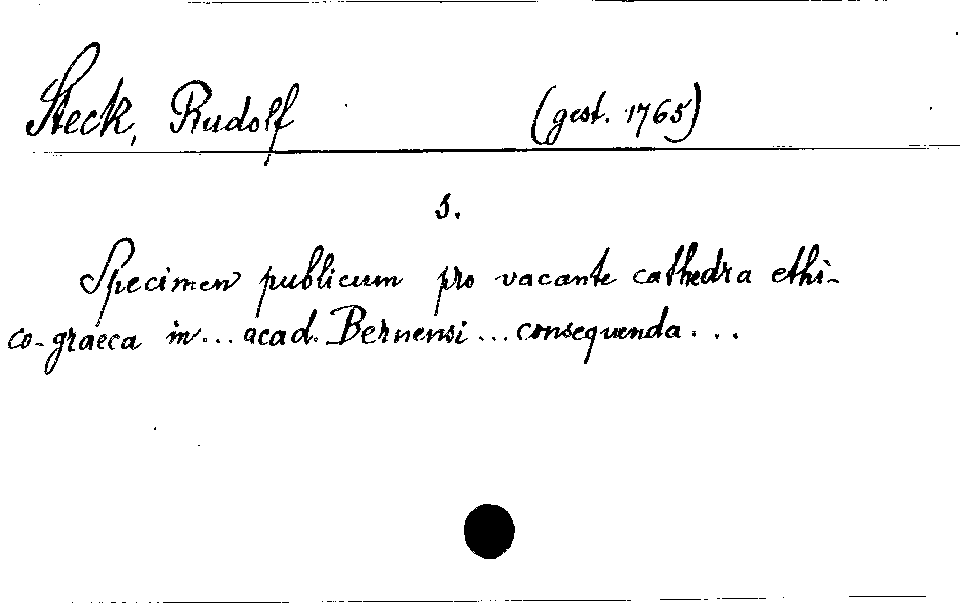 Steck, Rudolf (gest. 1765)
s.
Specimen publicum pro vacante cathedra ethi-
co-graeca in... acad. Bernensi... consequenda...